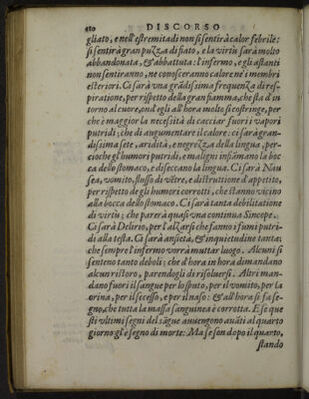 480 DISCORSO
gliato, e nell'estremita di non si sentirà calor febrile:
si sentirà gran puzza di fiato, e la virtu sarà molto
abbandonata, & abbattuta: l'infermo, e gli astanti
non sentiranno, ne conosceranno calore ne i membri
esteriori. Ci sarà vna grãdissima frequenza di res-
piratione, per rispetto della gran fiamma, che sta d'in
torno al cuore, ond'egli all'hora molto si costringe, per
che è maggior la necessità di cacciar fuori i vapori
putridi; che di augumentare il calore: ci sarà gran-
dissima sete, aridità, e negrezza della lingua, per-
cioche gl'humori putridi, e maligni infiãmano la boc
ca dello stomaco, e diseccano la lingua. Ci sarà Nau
sea, vomito, flusso di vẽtre, e distruttione d'appetito,
per rispetto de gli humori corrotti, che stanno vicino
alla bocca dello stomaco. Ci sarà tanta debilitatione
di virtù; che parerà quasi vna continua Sincope.
Ci sarà Delirio, per l'alzarsi che fanno i fumi putri-
di alla testa. Ci sarà ansietà, & inquietudine tanta;
che sempre l'infermo vorrà muttar luogo. Alcuni si
senteno tanto deboli; che d'hora in hora dimandano
alcun ristoro, parendogli di risoluersi. Altri man-
dano fuori il sangue per lo sputo, per il vomito, per la
orina, per il secesso, e per il naso: & all'hora si fa se-
gno, che tutta la massa sanguinea è corrotta. E se que
sti vltimi segni del sãgue auuengono auãti al quarto
giorno: gl'è segno di morte: Ma se son dopo il quarto,
stando